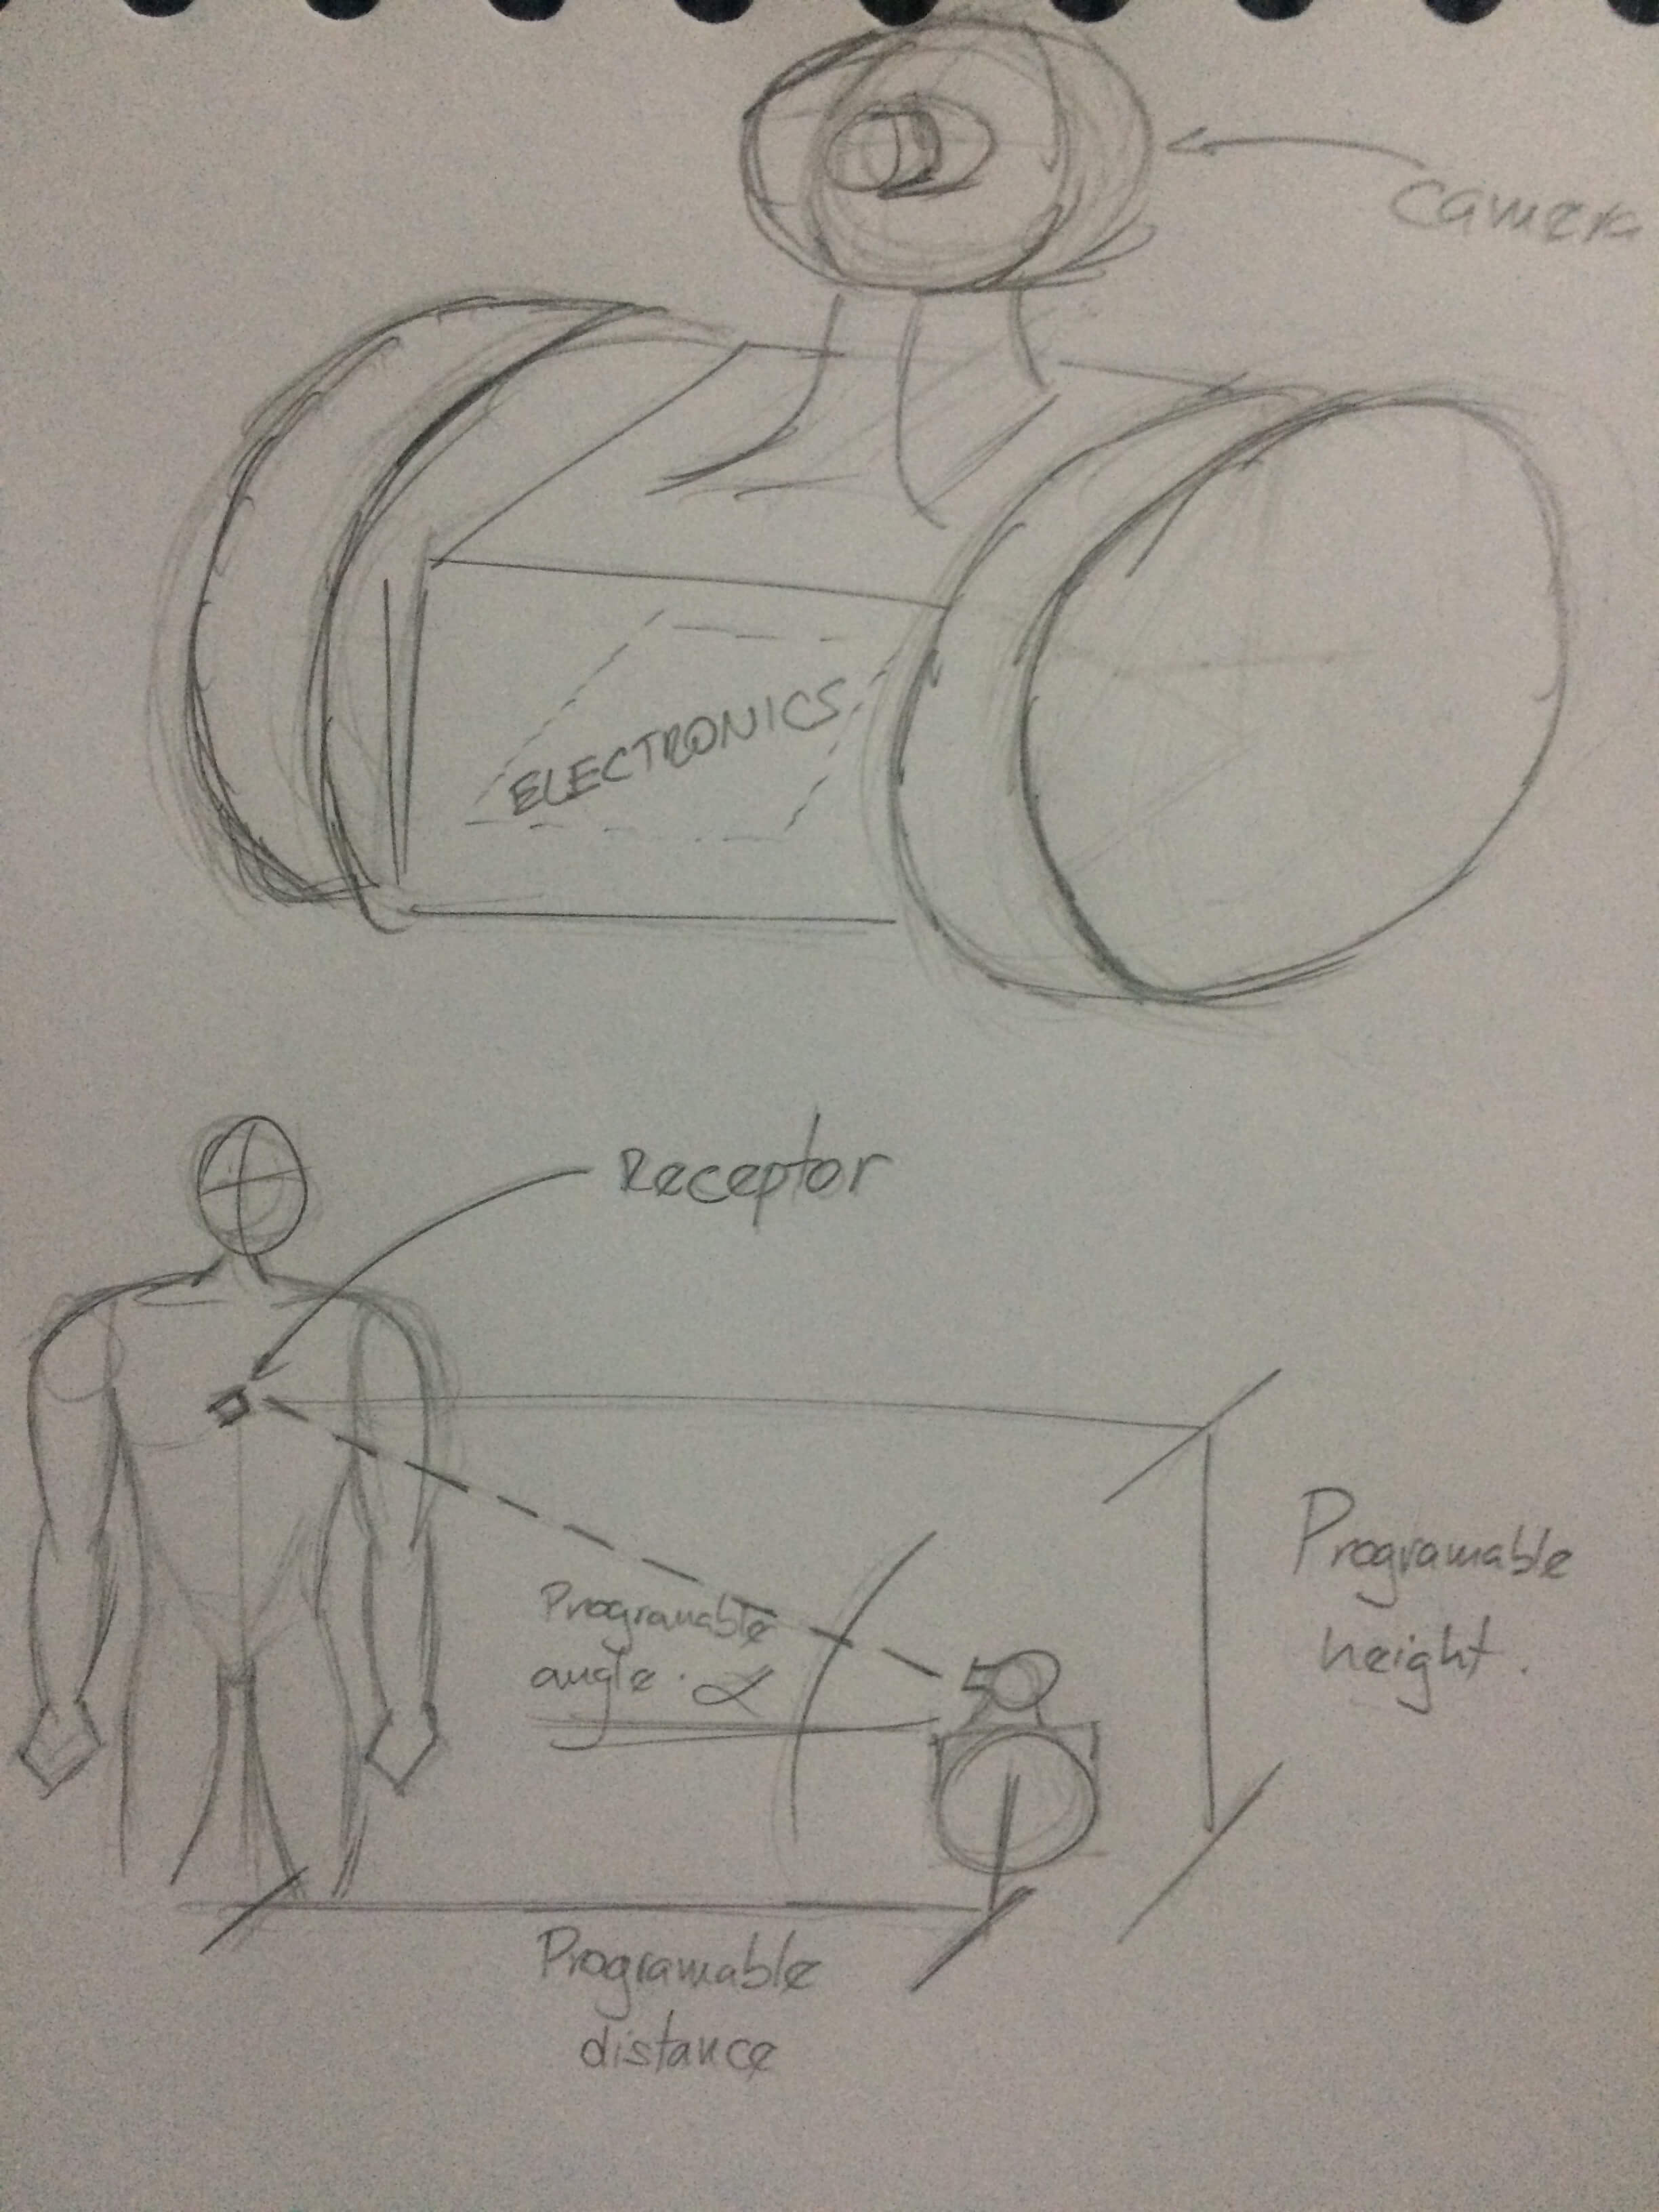 Camera
ELECTRONICS
Receptor
Programable
angle. α
Programable
height.
Programable
distance